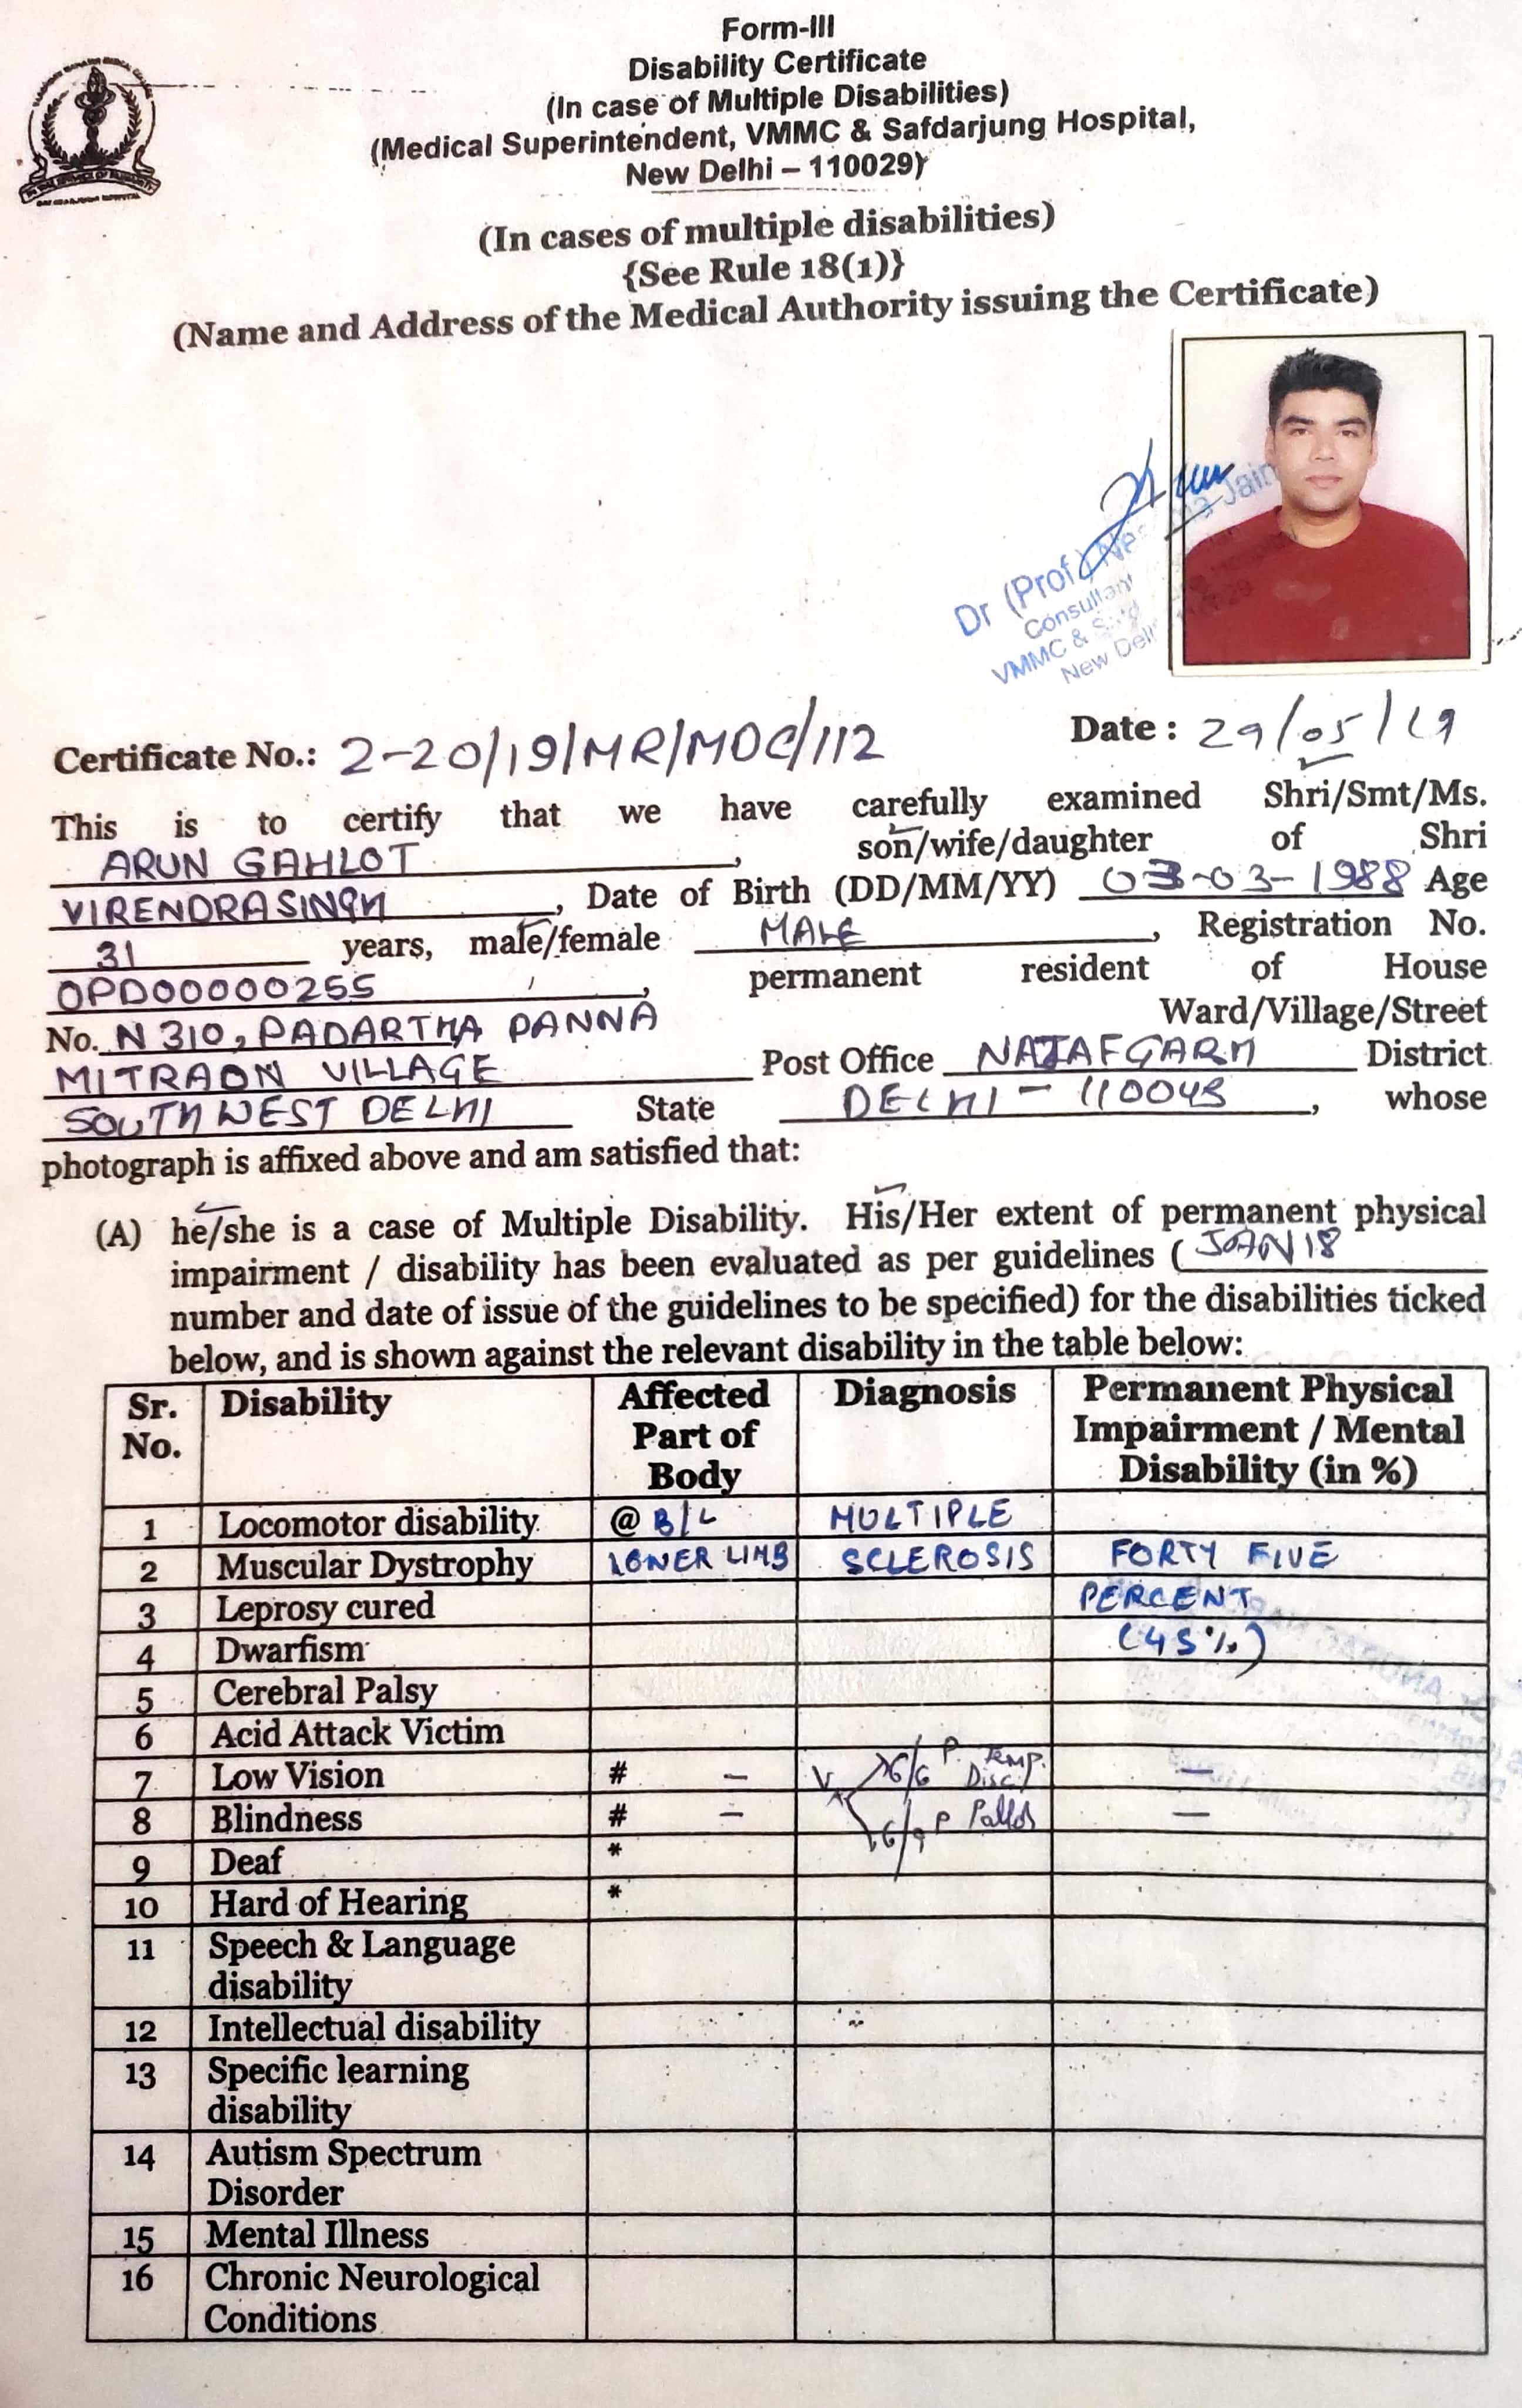 Form-III
Disability Certificate
(In case of Multiple Disabilities)
(Medical Superintendent, VMMC & Safdarjung Hospital,
New Delhi – 110029)
(In cases of multiple disabilities)
{See Rule 18(1)}
(Name and Address of the Medical Authority issuing the Certificate)
Dr (Prof.) Jain
Consultant
VMMC &
New Delhi
Certificate No.: 2-20/19/MR/MOC/112 Date : 29/05/19
This is to certify that we have carefully examined Shri/Smt/Ms.
ARUN GAHLOT, son/wife/daughter of Shri
VIRENDRA SINGH, Date of Birth (DD/MM/YY) 03-03-1988 Age
31 years, male/female MALE, Registration No.
OPD00000255, permanent resident of House
No. N 310, PADARTHA PANNA Ward/Village/Street
MITRAON VILLAGE Post Office NAJAFGARH District
SOUTH WEST DELHI State DELHI - 110043, whose
photograph is affixed above and am satisfied that:
(A) he/she is a case of Multiple Disability. His/Her extent of permanent physical
impairment / disability has been evaluated as per guidelines ( JAN 18
number and date of issue of the guidelines to be specified) for the disabilities ticked
below, and is shown against the relevant disability in the table below:
Sr. No. Disability Affected Part of Body Diagnosis Permanent Physical Impairment / Mental Disability (in %)
1 Locomotor disability @ B/L MULTIPLE
2 Muscular Dystrophy LOWER LIMB SCLEROSIS FORTY FIVE
3 Leprosy cured PERCENT
4 Dwarfism (45%)
5 Cerebral Palsy
6 Acid Attack Victim
7 Low Vision # – V 6/6 P. Temp. Disc –
8 Blindness # – 6/9 P Pallor –
9 Deaf *
10 Hard of Hearing *
11 Speech & Language disability
12 Intellectual disability
13 Specific learning disability
14 Autism Spectrum Disorder
15 Mental Illness
16 Chronic Neurological Conditions